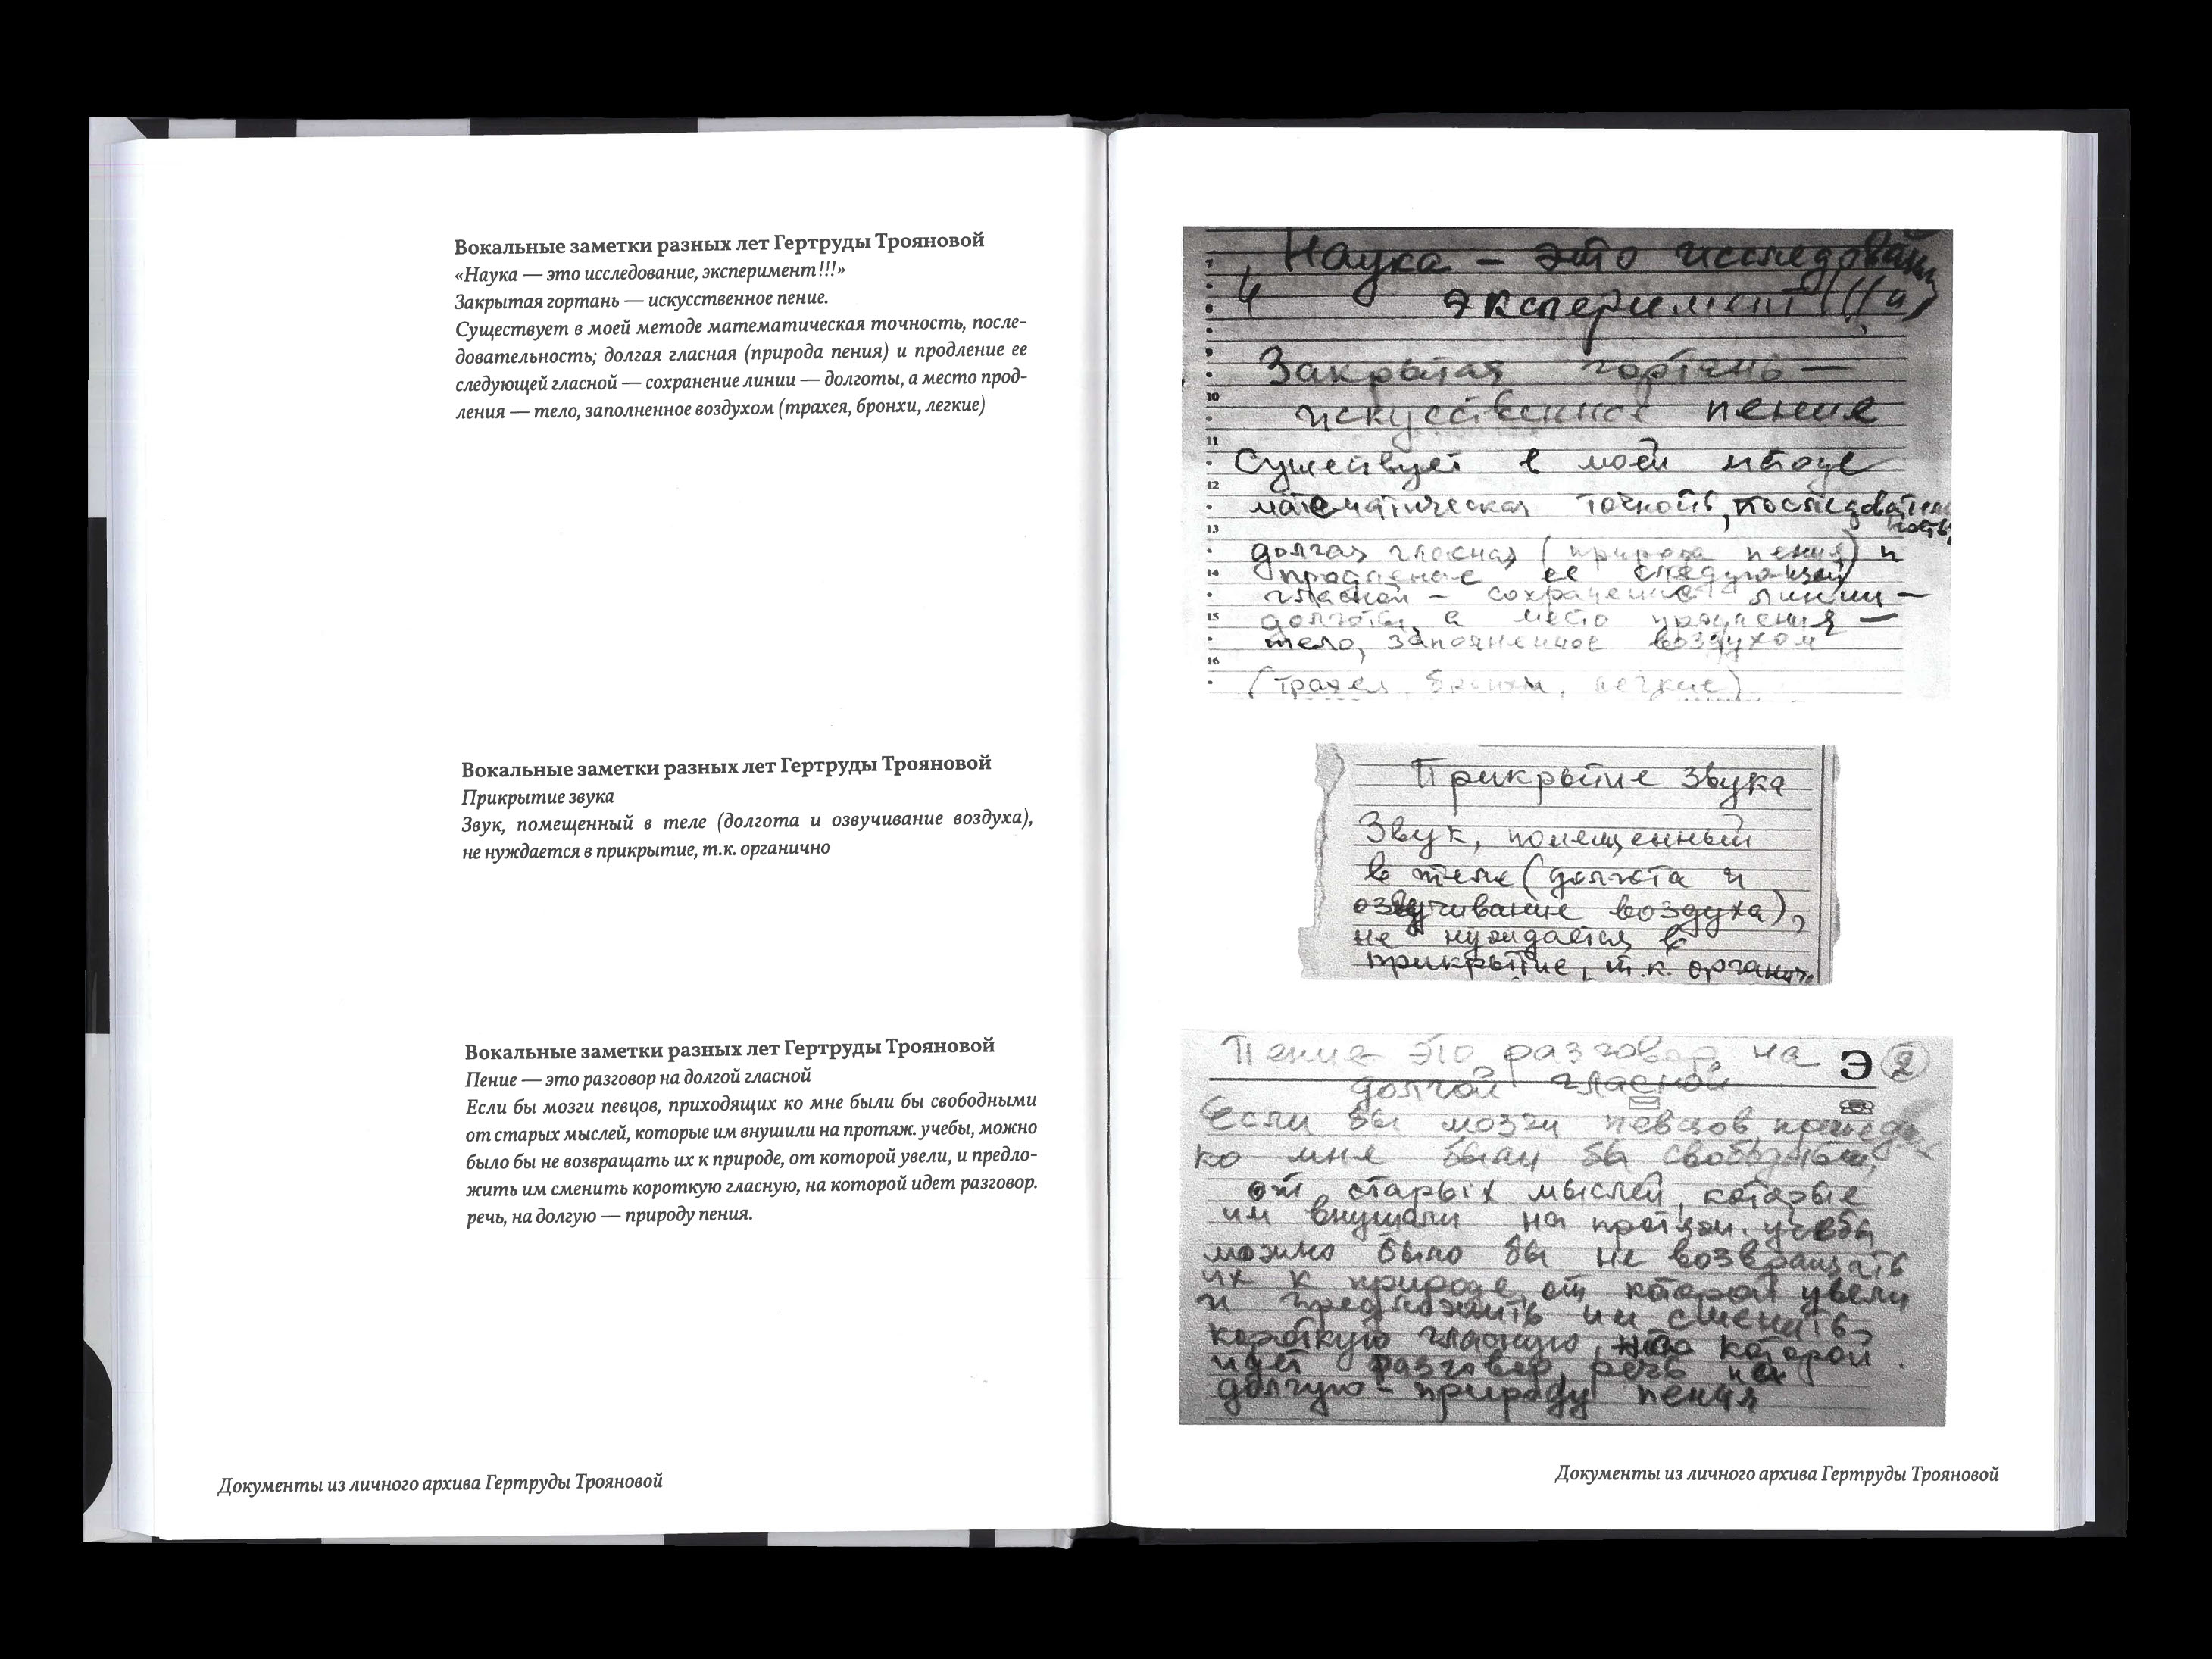 Вокальные заметки разных лет Гертруды Трояновой
«Наука — это исследование, эксперимент!!!»
Закрытая гортань — искусственное пение.
Существует в моей методе математическая точность, после-
довательность; долгая гласная (природа пения) и продление ее
следующей гласной — сохранение линии — долготы, а место прод-
ления — тело, заполненное воздухом (трахея, бронхи, легкие)
Вокальные заметки разных лет Гертруды Трояновой
Прикрытие звука
Звук, помещенный в теле (долгота и озвучивание воздуха),
не нуждается в прикрытие, т.к. органично
Вокальные заметки разных лет Гертруды Трояновой
Пение — это разговор на долгой гласной
Если бы мозги певцов, приходящих ко мне были бы свободными
от старых мыслей, которые им внушили на протяж. учебы, можно
было бы не возвращать их к природе, от которой увели, и предло-
жить им сменить короткую гласную, на которой идет разговор.
речь, на долгую — природу пения.
Документы из личного архива Гертруды Трояновой
7
Наука – это исследован
8
эксперимент
9
Закрытая гортань —
10
искусственное пение
11
Существует в моей методе
12
математическая точность, последователь
13
ность,
долгая гласная (природа пения) и
14
продление ее следующей
гласной – сохранение линии —
15
долготы, а место продления —
тело, заполненное воздухом
16
(трахея, бронхи, легкие)
Прикрытие звука
Звук, помещенный
в теле (долгота и
озвучивание воздуха),
не нуждается в
прикрытие, т.к. органич
Пение это разговор на Э 2
долгой гласной
Если бы мозги певцов,
ко мне были бы свободными,
от старых мыслей, которые
им внушали на протяж. учебы
можно было бы не возвращать
их к природе, от которой увели
и предложить им сменить
короткую гласную, на которой
идет разговор, речь на
долгую – природу пения
Документы из личного архива Гертруды Трояновой